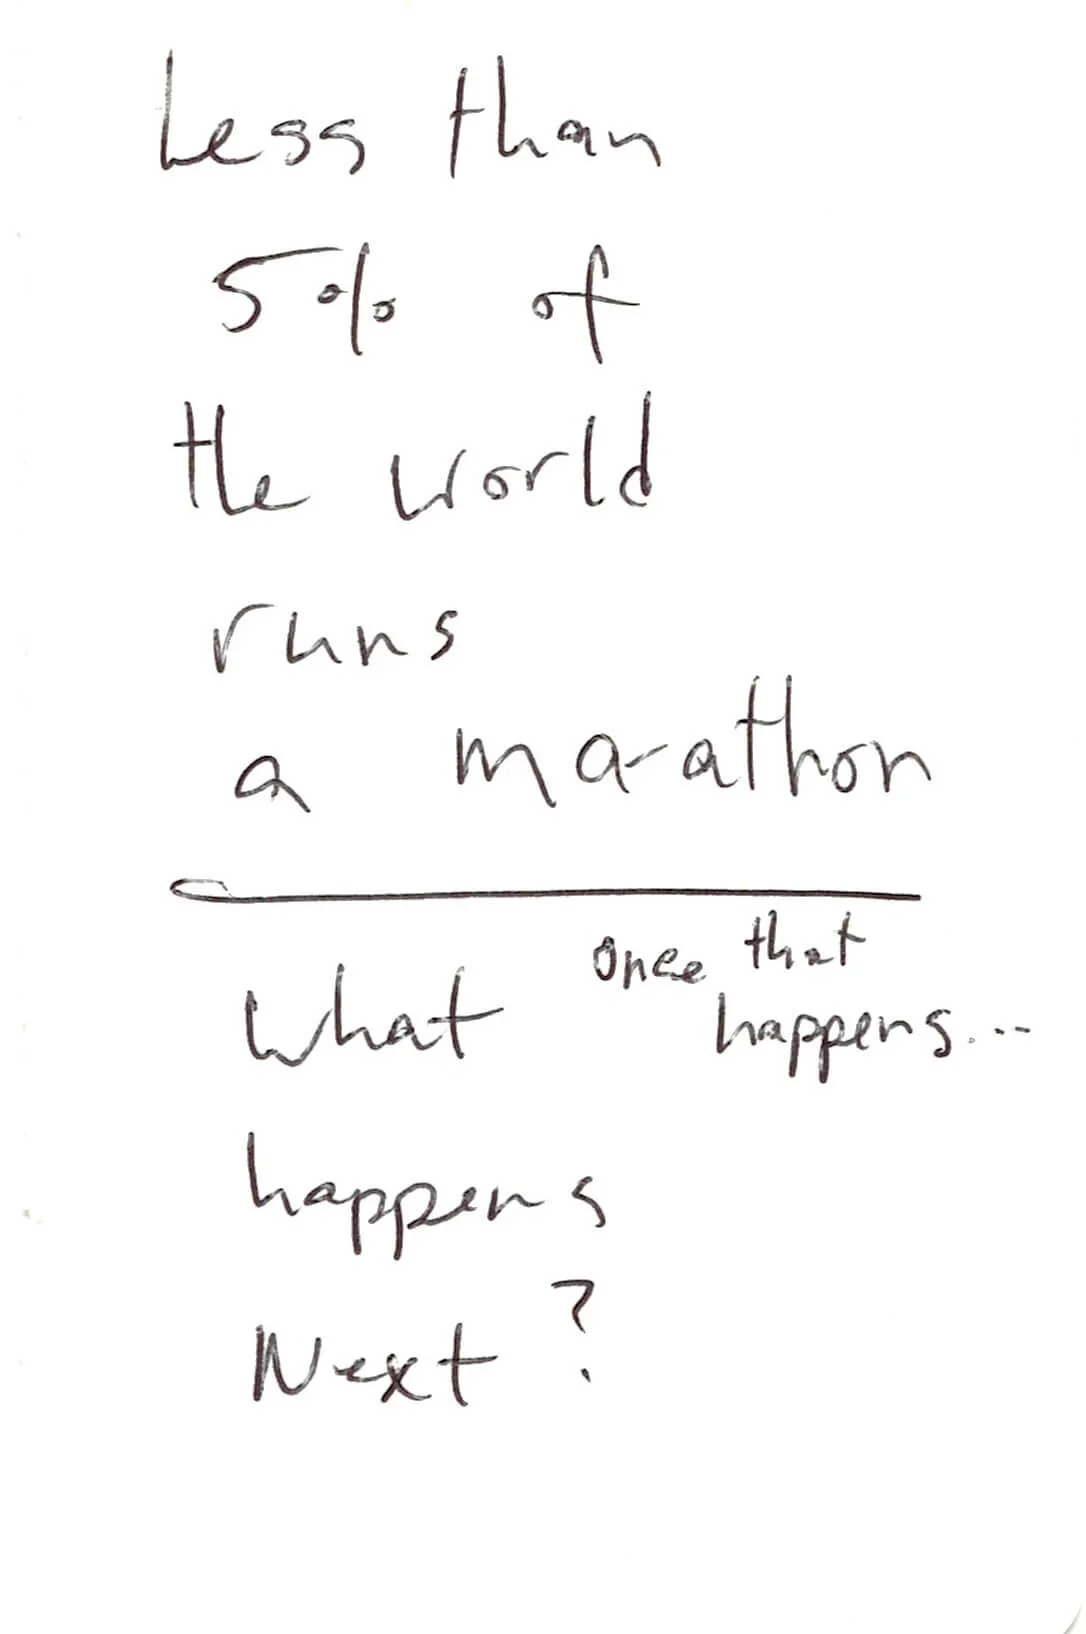 Less than
5% of
the world
runs
a marathon
once that
happens...
What
happens
Next?